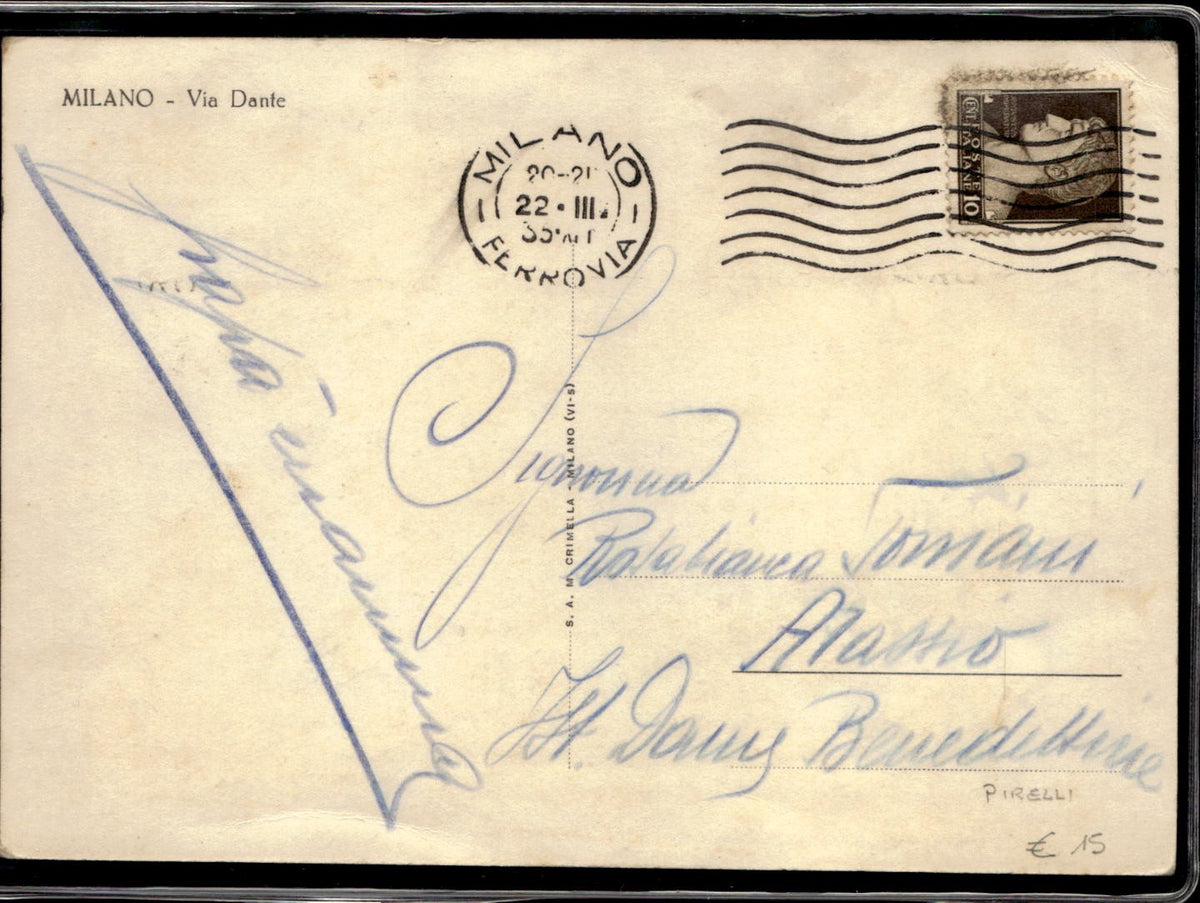 MILANO - Via Dante
MILANO
20-21
22 · III.
FERROVIA
POSTE
ITALIANE
10
S. A. M. CRIMELLA - MILANO (VI-S)
Signorina
Rosabianca Tomani
Alassio
Ist. Dame Benedettine
PIRELLI
€ 15